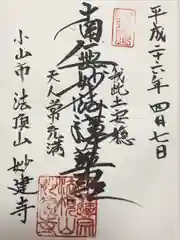 平成二十六年 四月七日
我此土安穏
南無妙法蓮華経
天人常充満
小山市 法頂山 妙建寺